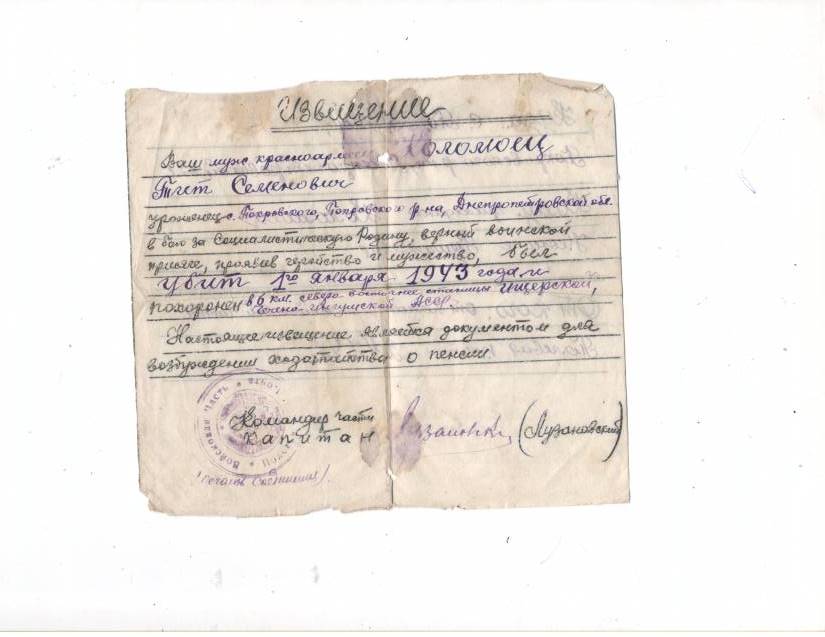 Извещение
Ваш муж красноармеец Коломоец
Тит Семенович
уроженец с. Покровского, Покровского р-на, Днепропетровской обл.
в бою за Социалистическую Родину, верный воинской
присяге, проявив геройство и мужество, был
убит 1го января 1943 года и
похоронен в 6 км. северо-восточнее станицы Ищерской,
Чечено-Ингушской АССР
Настоящее извещение является документом для
возбуждения ходатайства о пенсии.
Командир части
капитан
(Лузановский)
Войсковая часть